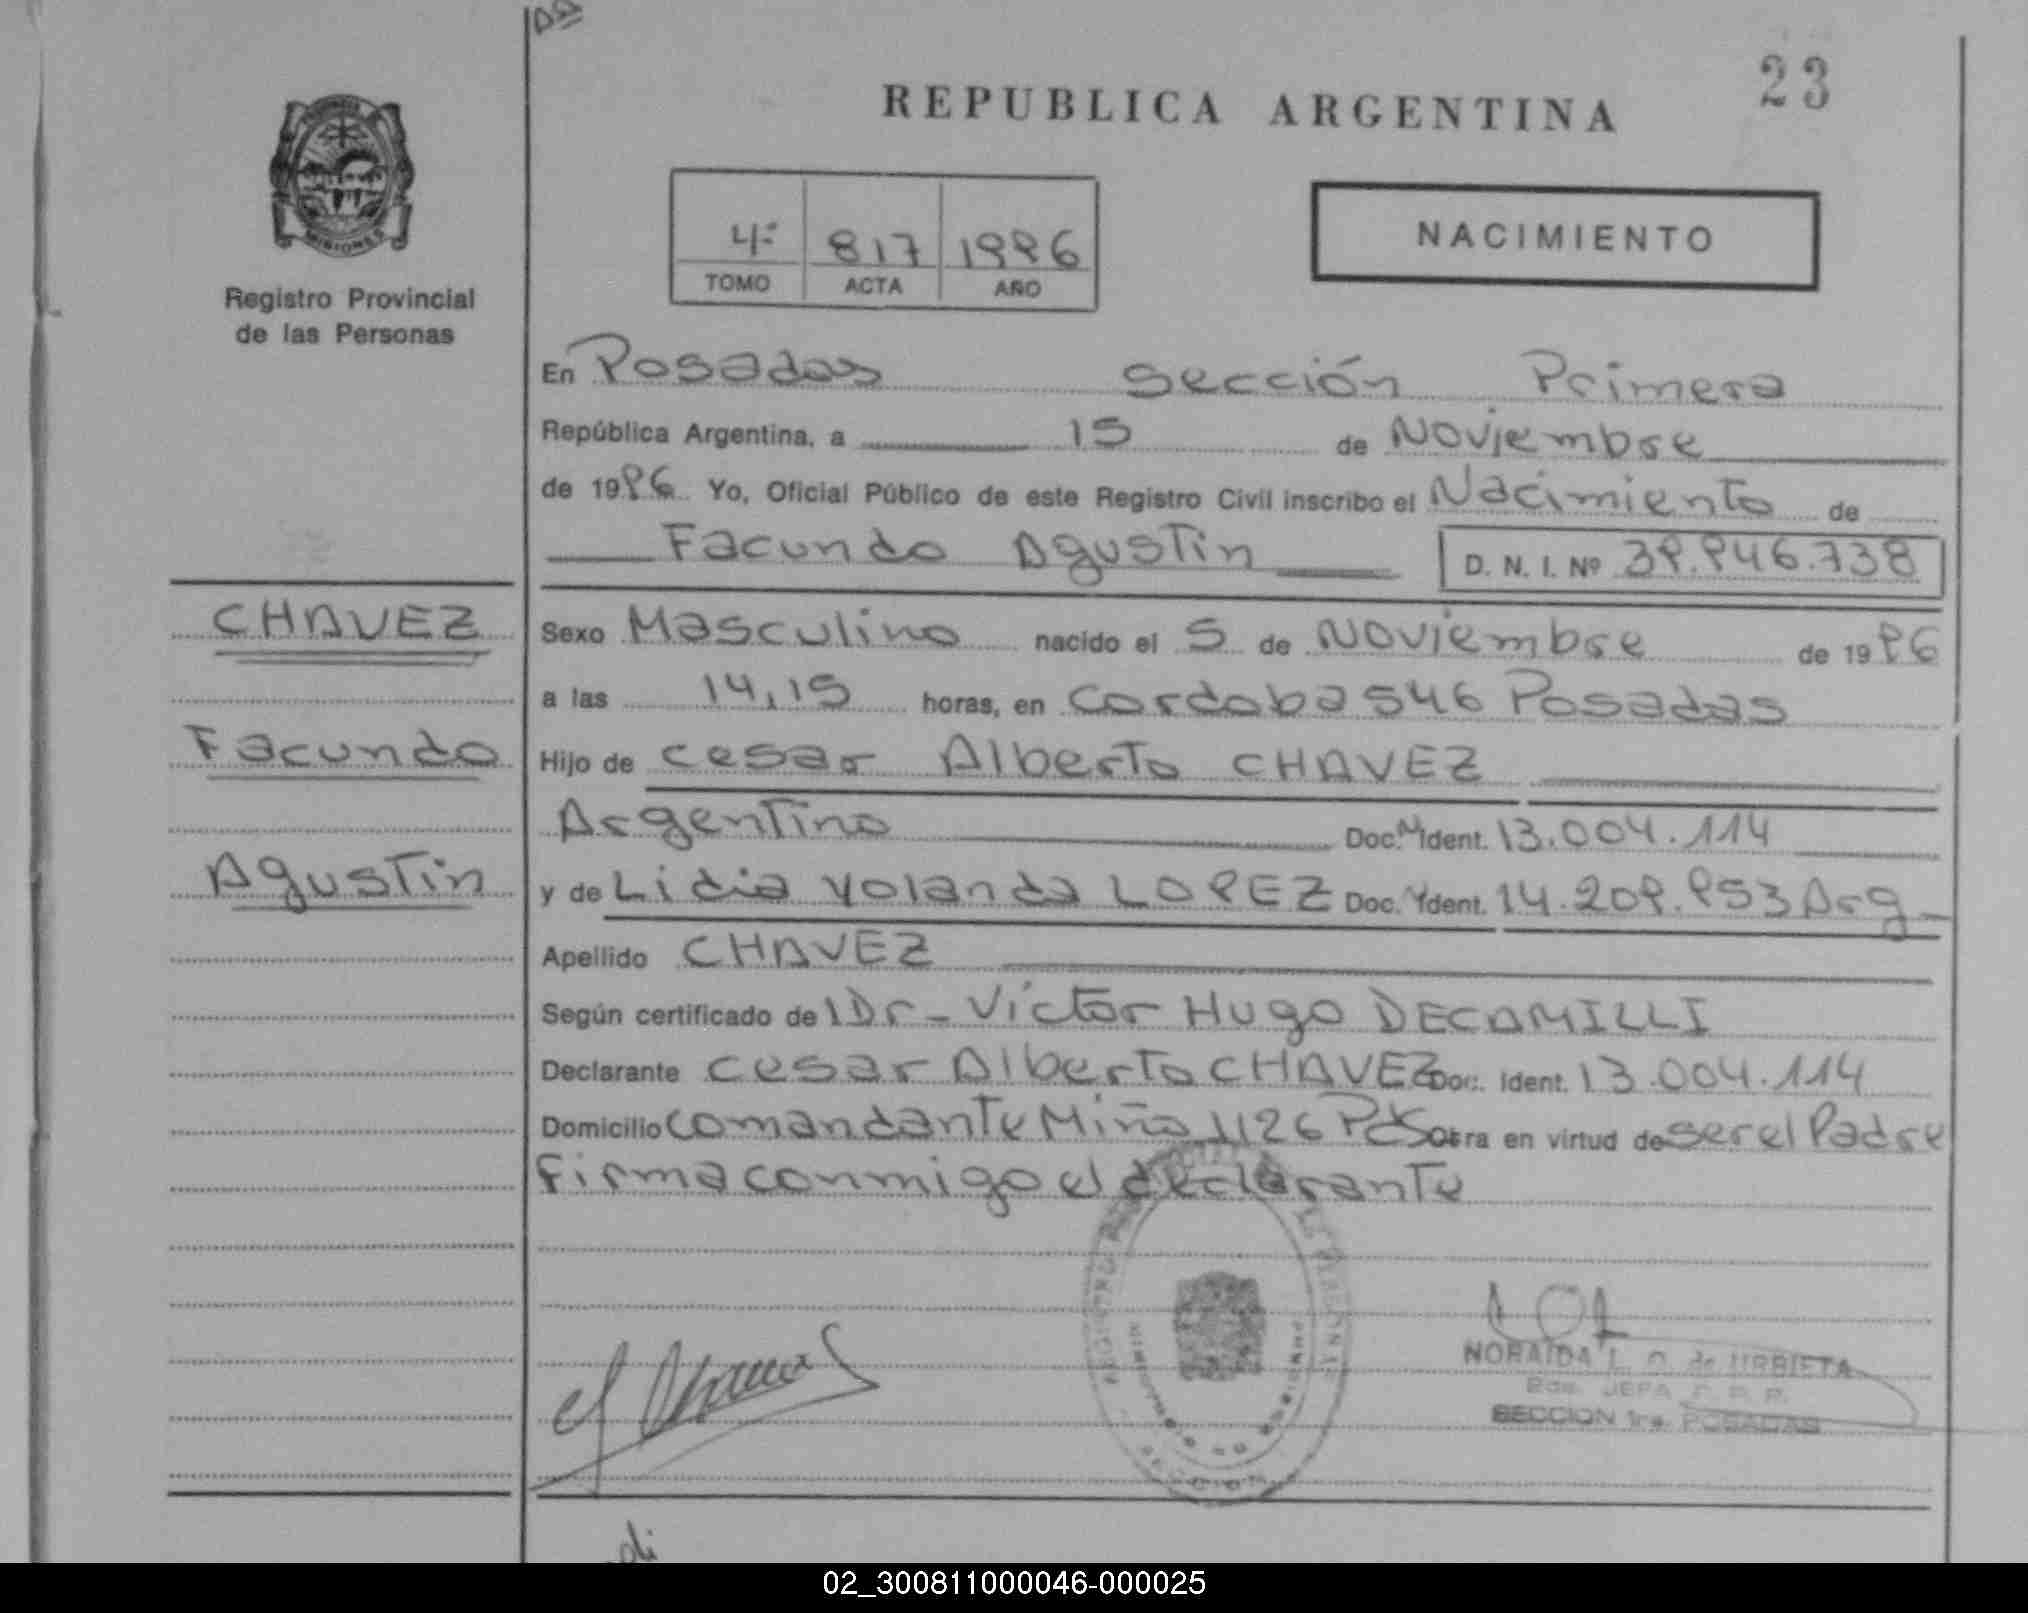 23
REPUBLICA ARGENTINA
MISIONES
Registro Provincial
de las Personas
4º 817 1996
TOMO ACTA AÑO
NACIMIENTO
En Posadas Sección Primera
República Argentina, a 15 de Noviembre
de 1996 Yo, Oficial Público de este Registro Civil inscribo el Nacimiento de
Facundo Agustin D. N. I. Nº 39.946.738
CHAVEZ
Facundo
Agustin
Sexo Masculino nacido el 5 de Noviembre de 1996
a las 14,15 horas, en Cordoba 546 Posadas
Hijo de Cesar Alberto CHAVEZ
Argentino Doc. Ident. 13.004.114
y de Lidia Yolanda LOPEZ Doc. Ident. 14.209.953 Arg
Apellido CHAVEZ
Según certificado de Dr- Victor Hugo DECAMILLI
Declarante Cesar Alberto CHAVEZ Doc. Ident. 13.004.114
Domicilio Comandante Miño 1126 Pdas Obra en virtud de ser el Padre
Firma conmigo el declarante
NORAIDA L. O. de URBIETA
2da. JEFA R. P. P.
SECCION 1ra. POSADAS
02_300811000046-000025